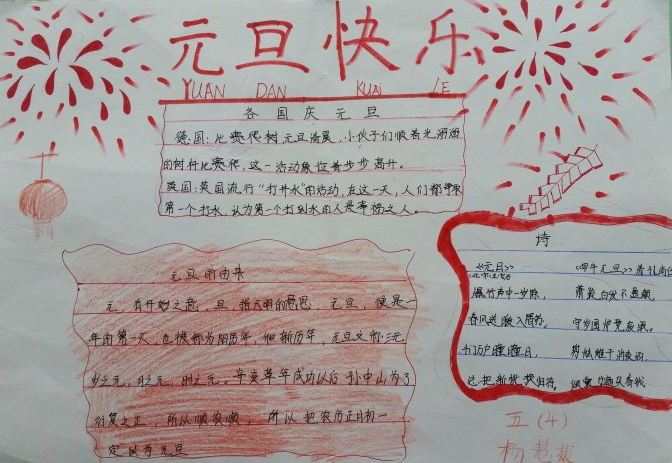 元旦快乐
YUAN DAN KUAi LE
各国庆元旦
德国:比赛爬树元旦清晨,小伙子们顺着光溜溜
的树杆比赛爬,这一活动象征着步步高升。
英国:英国流行“打井水”的活动,在这一天,人们都争
第一个打水,认为第一个打到水的人是幸福之人。
元旦的由来
元,有开始之意,旦,指天明的意思。元旦,便是一
年的第一天,也被称为阳历年,
新历年,元旦又称三元,
岁之元,月之元,时之元。辛亥革命成功以后孙中山为了
行夏之正,所以顺农
,所以把农历正月初一
定
为元旦
诗
《元日》
爆竹声中一岁除,
春风送暖入屠苏,
千门万户曈曈日,
总把新桃换旧符。
萧疏白发不盈颠,
守岁围炉竟废眠。
五(4)
杨